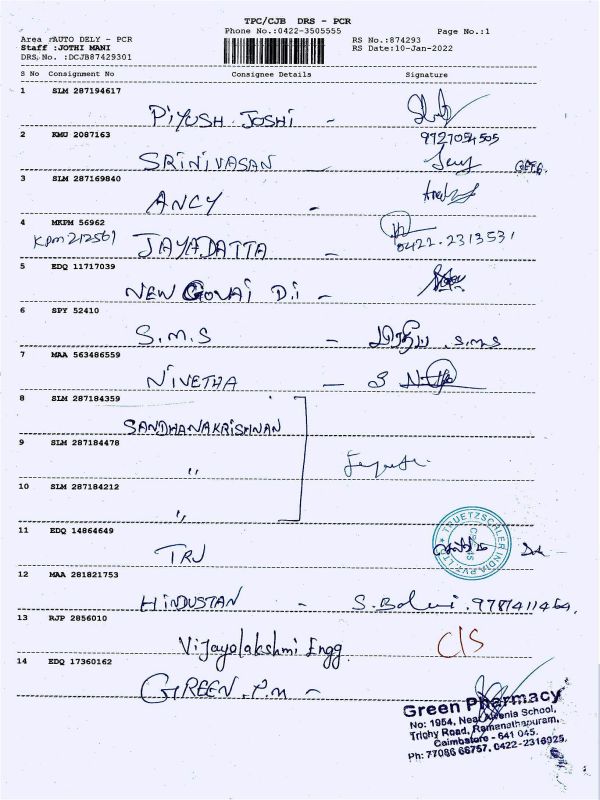 TPC/CJB DRS - PCR
Phone No.:0422-3505555
Page No.:1
Area :AUTO DELY - PCR
Staff :JOTHI MANI
DRS. No. :DCJB87429301
RS No.:874293
RS Date:10-Jan-2022
S No Consignment No Consignee Details Signature
1 SLM 287194617
PIYUSH JOSHI -
9727054505
2 KMU 2087163
SRINIVASAN
3 SLM 287169840
ANCY -
4 MKPM 56962
KPM 212561 JAYADATTA - 0422-2313531
5 EDQ 11717039
NEW GOVAI D.i -
6 SPY 52410
S.M.S - S.M.S
7 MAA 563486559
NIVETHA -
8 SLM 287184359
SANDHANAKRISHNAN
9 SLM 287184478
"
10 SLM 287184212
"
TRUETZSCHLER INDIA PVT. LTD.
11 EDQ 14864649
TRU
12 MAA 281821753
HINDUSTAN -
13 RJP 2856010
Vijayalakshmi Engg. C/S
14 EDQ 17360162
GREEN P.M -
Green Pharmacy
No: 1954, Near Alvenia School,
Trichy Road, Ramanathapuram,
Coimbatore - 641 045.
Ph: 77086 66757, 0422-2316925.